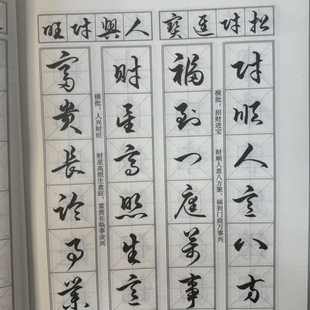 招财進寶
财順人意八方
横批：招财进宝 财顺人意八方聚，福到门庭万事兴
福到门庭萬事
人興财旺
财星高照生意
横批：人兴财旺 财星高照生意旺，富贵长临事业兴
富貴長临事業